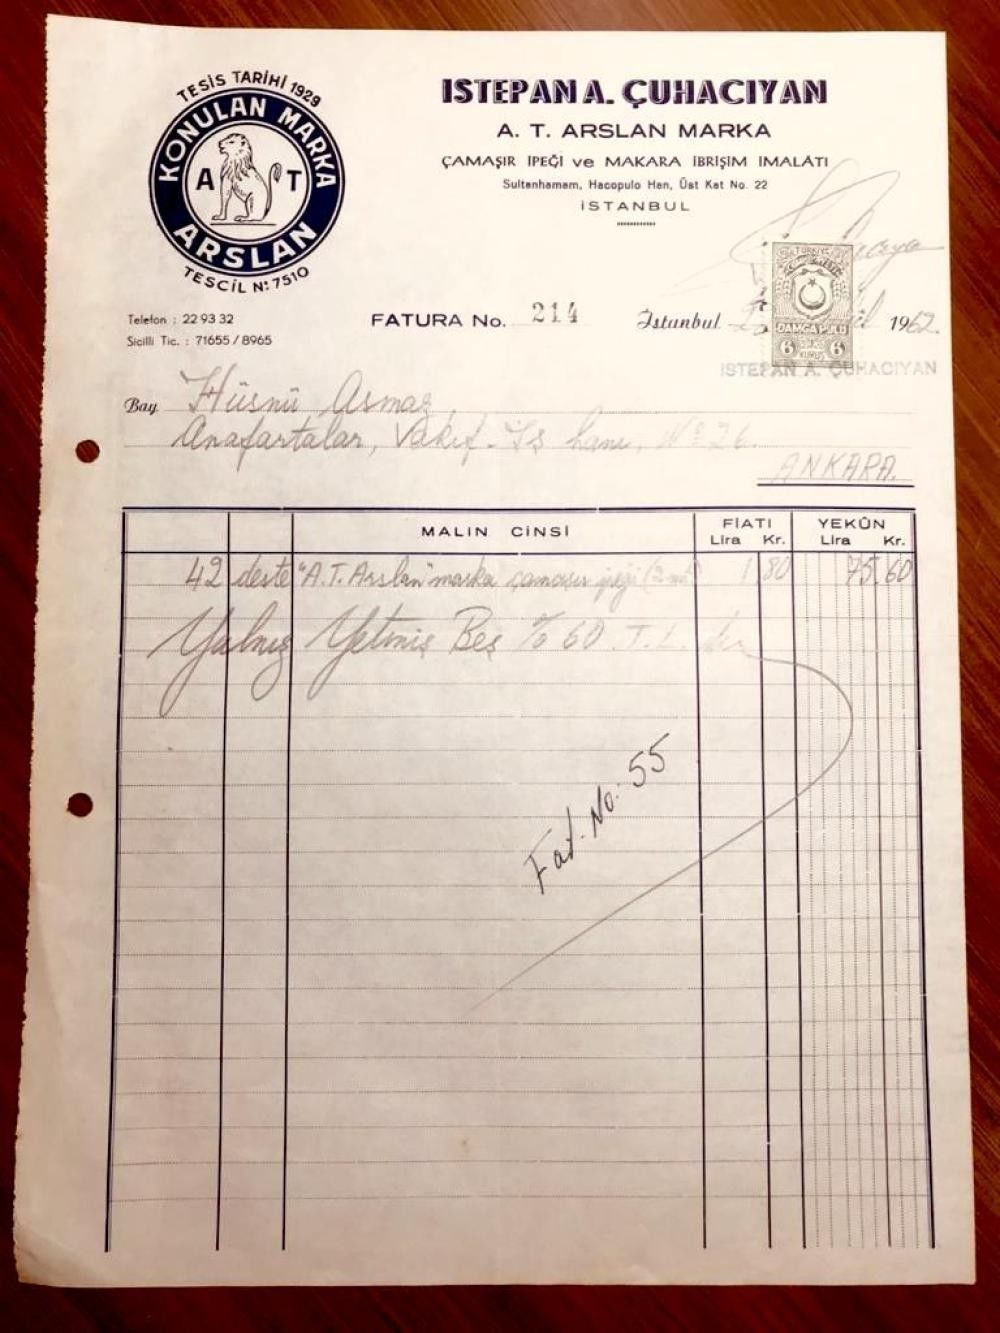 TESİS TARİHİ 1929
KONULAN MARKA
A T
ARSLAN
TESCİL No: 7510
ISTEPAN A. ÇUHACIYAN
A. T. ARSLAN MARKA
ÇAMAŞIR İPEĞİ ve MAKARA İBRİŞİM İMALATI
Sultanhamam, Hacopulo Han, Üst Kat No. 22
İSTANBUL
Telefon : 22 93 32
Sicilli Tic. : 71655 / 8965
FATURA No. 214
İstanbul 1962.
TÜRKİYE
DAMGA PULU
6 KURUŞ 6
ISTEPAN A. ÇUHACIYAN
Bay Hüsnü Asmaz
Anafartalar, Vakıf-İş hanı, No 26.
ANKARA.
MALIN CİNSİ FİATI YEKÛN
Lira Kr. Lira Kr.
42 deste "A.T. Arslan" marka çamaşır ipeği 1 80 75 60
Yalnız Yetmiş Beş % 60 T.L. dır
Fat. No: 55